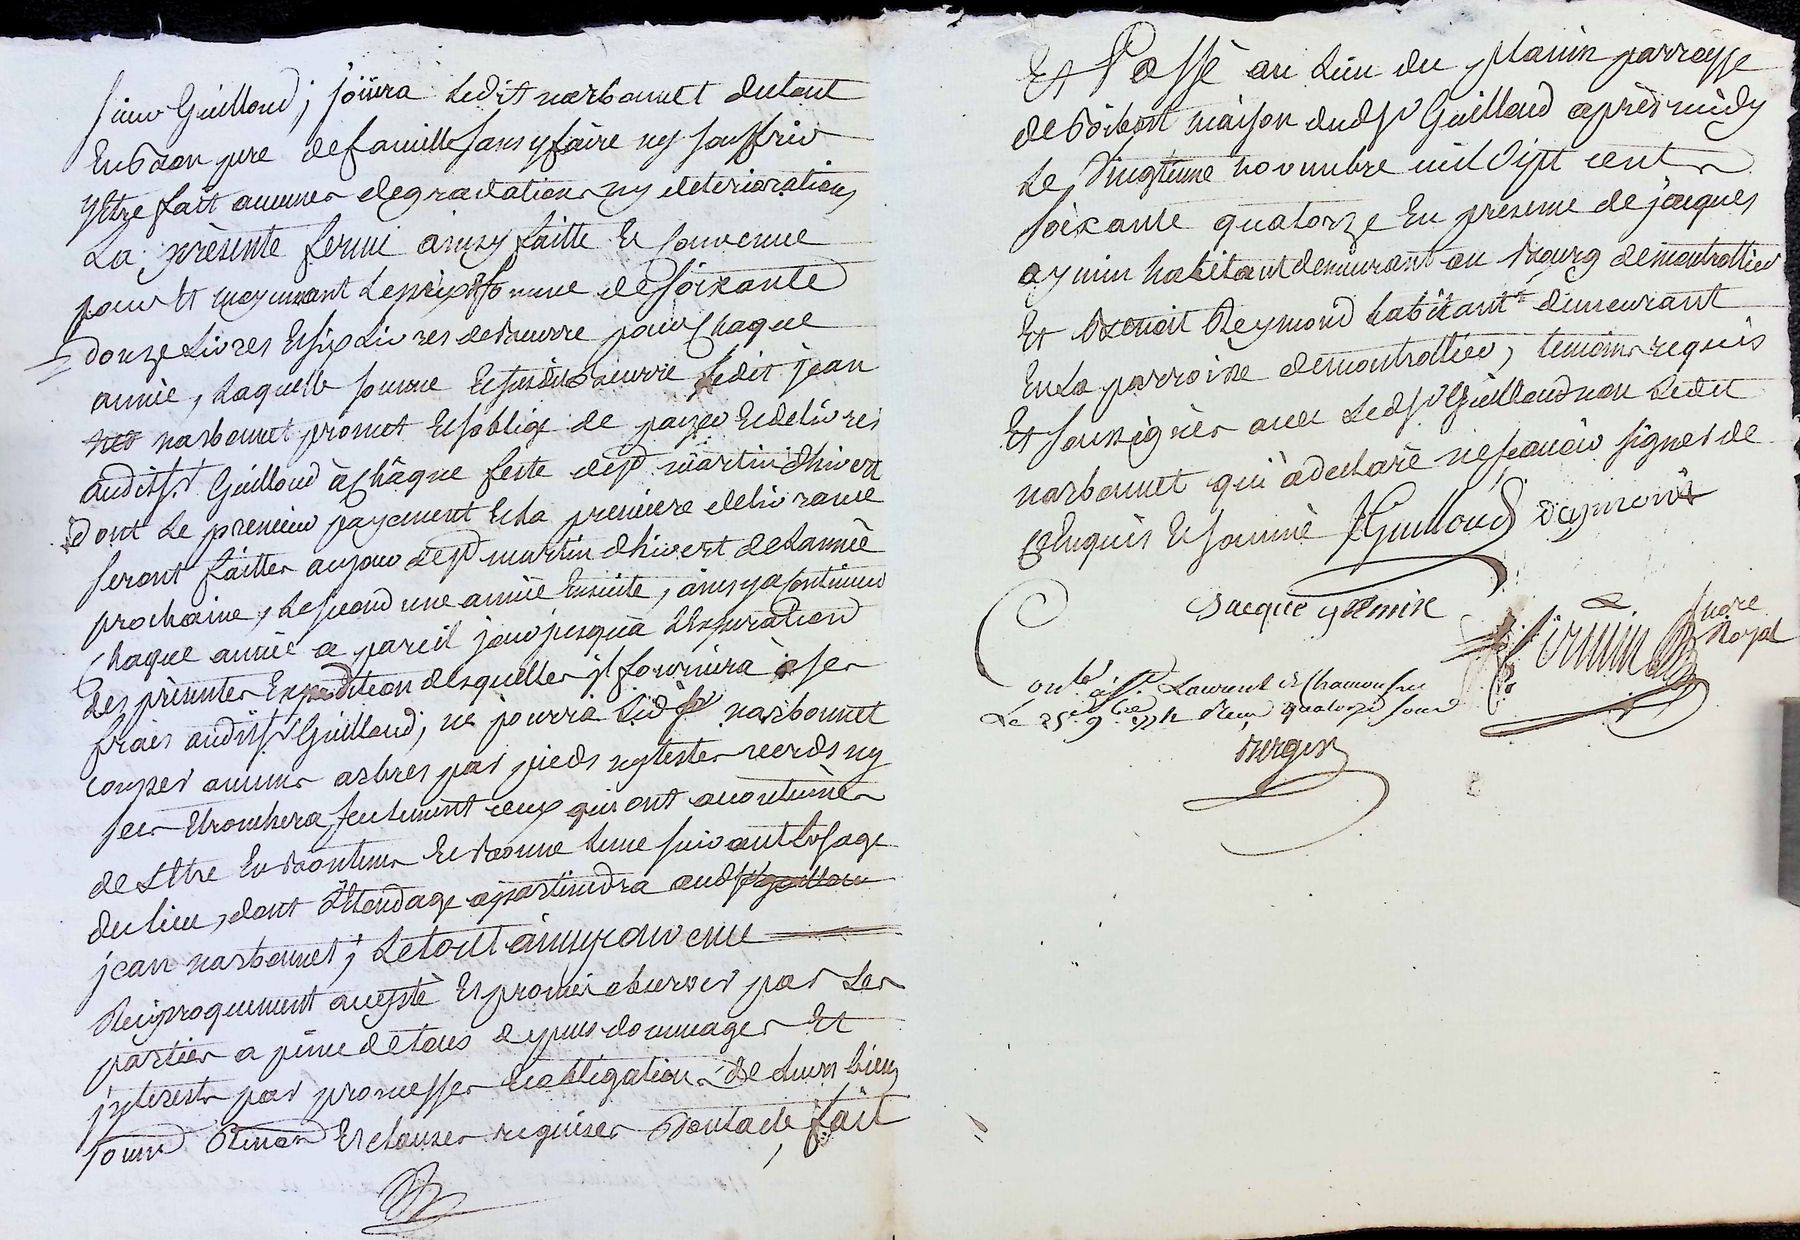 sieur Guilloud; joüira ledit narbonnet du tout
en bon pere de famille sans y faire ny souffrir
y etre fait aucunes degradations ny deteriorations
La présente ferme ainsy faitte et convenue
pour et moyennant le prix et somme de soixante
douze Livres et six Livres de beurre pour chaque
année, Laquelle somme et susdit beurre ledit jean
narbonnet promet et s'oblige de payer et delivrer
audit sr. Guilloud à chaque feste de st martin d'hivert
dont le premier payement et la premiere delivrance
seront faittes au jour de st martin d'hivert de L'année
prochaine, Le second une année ensuite, ainsy a continuer
chaque année a pareil jour jusqu'a L'expiration
des présentes Expedition desquelles il fournira à ses
frais audit sr Guilloud, ne pourra led narbonnet
couper aucuns arbres par pieds ny testes verds ny
secs Ebranchera seulement ceux qui ont accoutumés
de L'etre en bon tems et bonne Lune suivant L'usage
du lieu, dont L'Elondage apartiendra aud sr guilloud
jean narbonnet; Le tout ainsy convenu
Reciproquement accepté et promis observer par les
parties a peine de tous depens dommages et
jnterests par promesses et obligations de Leurs biens
soumis Renon et clauses requises Dont acte, fait
Et Passé au Lieu du planin parroisse
de maison dudsr Guilloud après midy
Le Vingtieme novembre mil sept cent
soixante quatorze En presence de jacques
aymin habitant demeurant au Bourg de montrottier
Et Benoit Reymond habitant demeurant
En La parroisse de montrottier, temoins requis
Et soussignés avec Ledsr Guilloud non Ledit
narbonnet qui a declaré ne sçavoir signer de
ce Enquis et sommé JGuilloud Reymond
Jacque ymin
notre
Royal
Contlé à st. Laurent de Chamousset
Le 25e 9bre 1774 Reçu quatorze sous
Berger